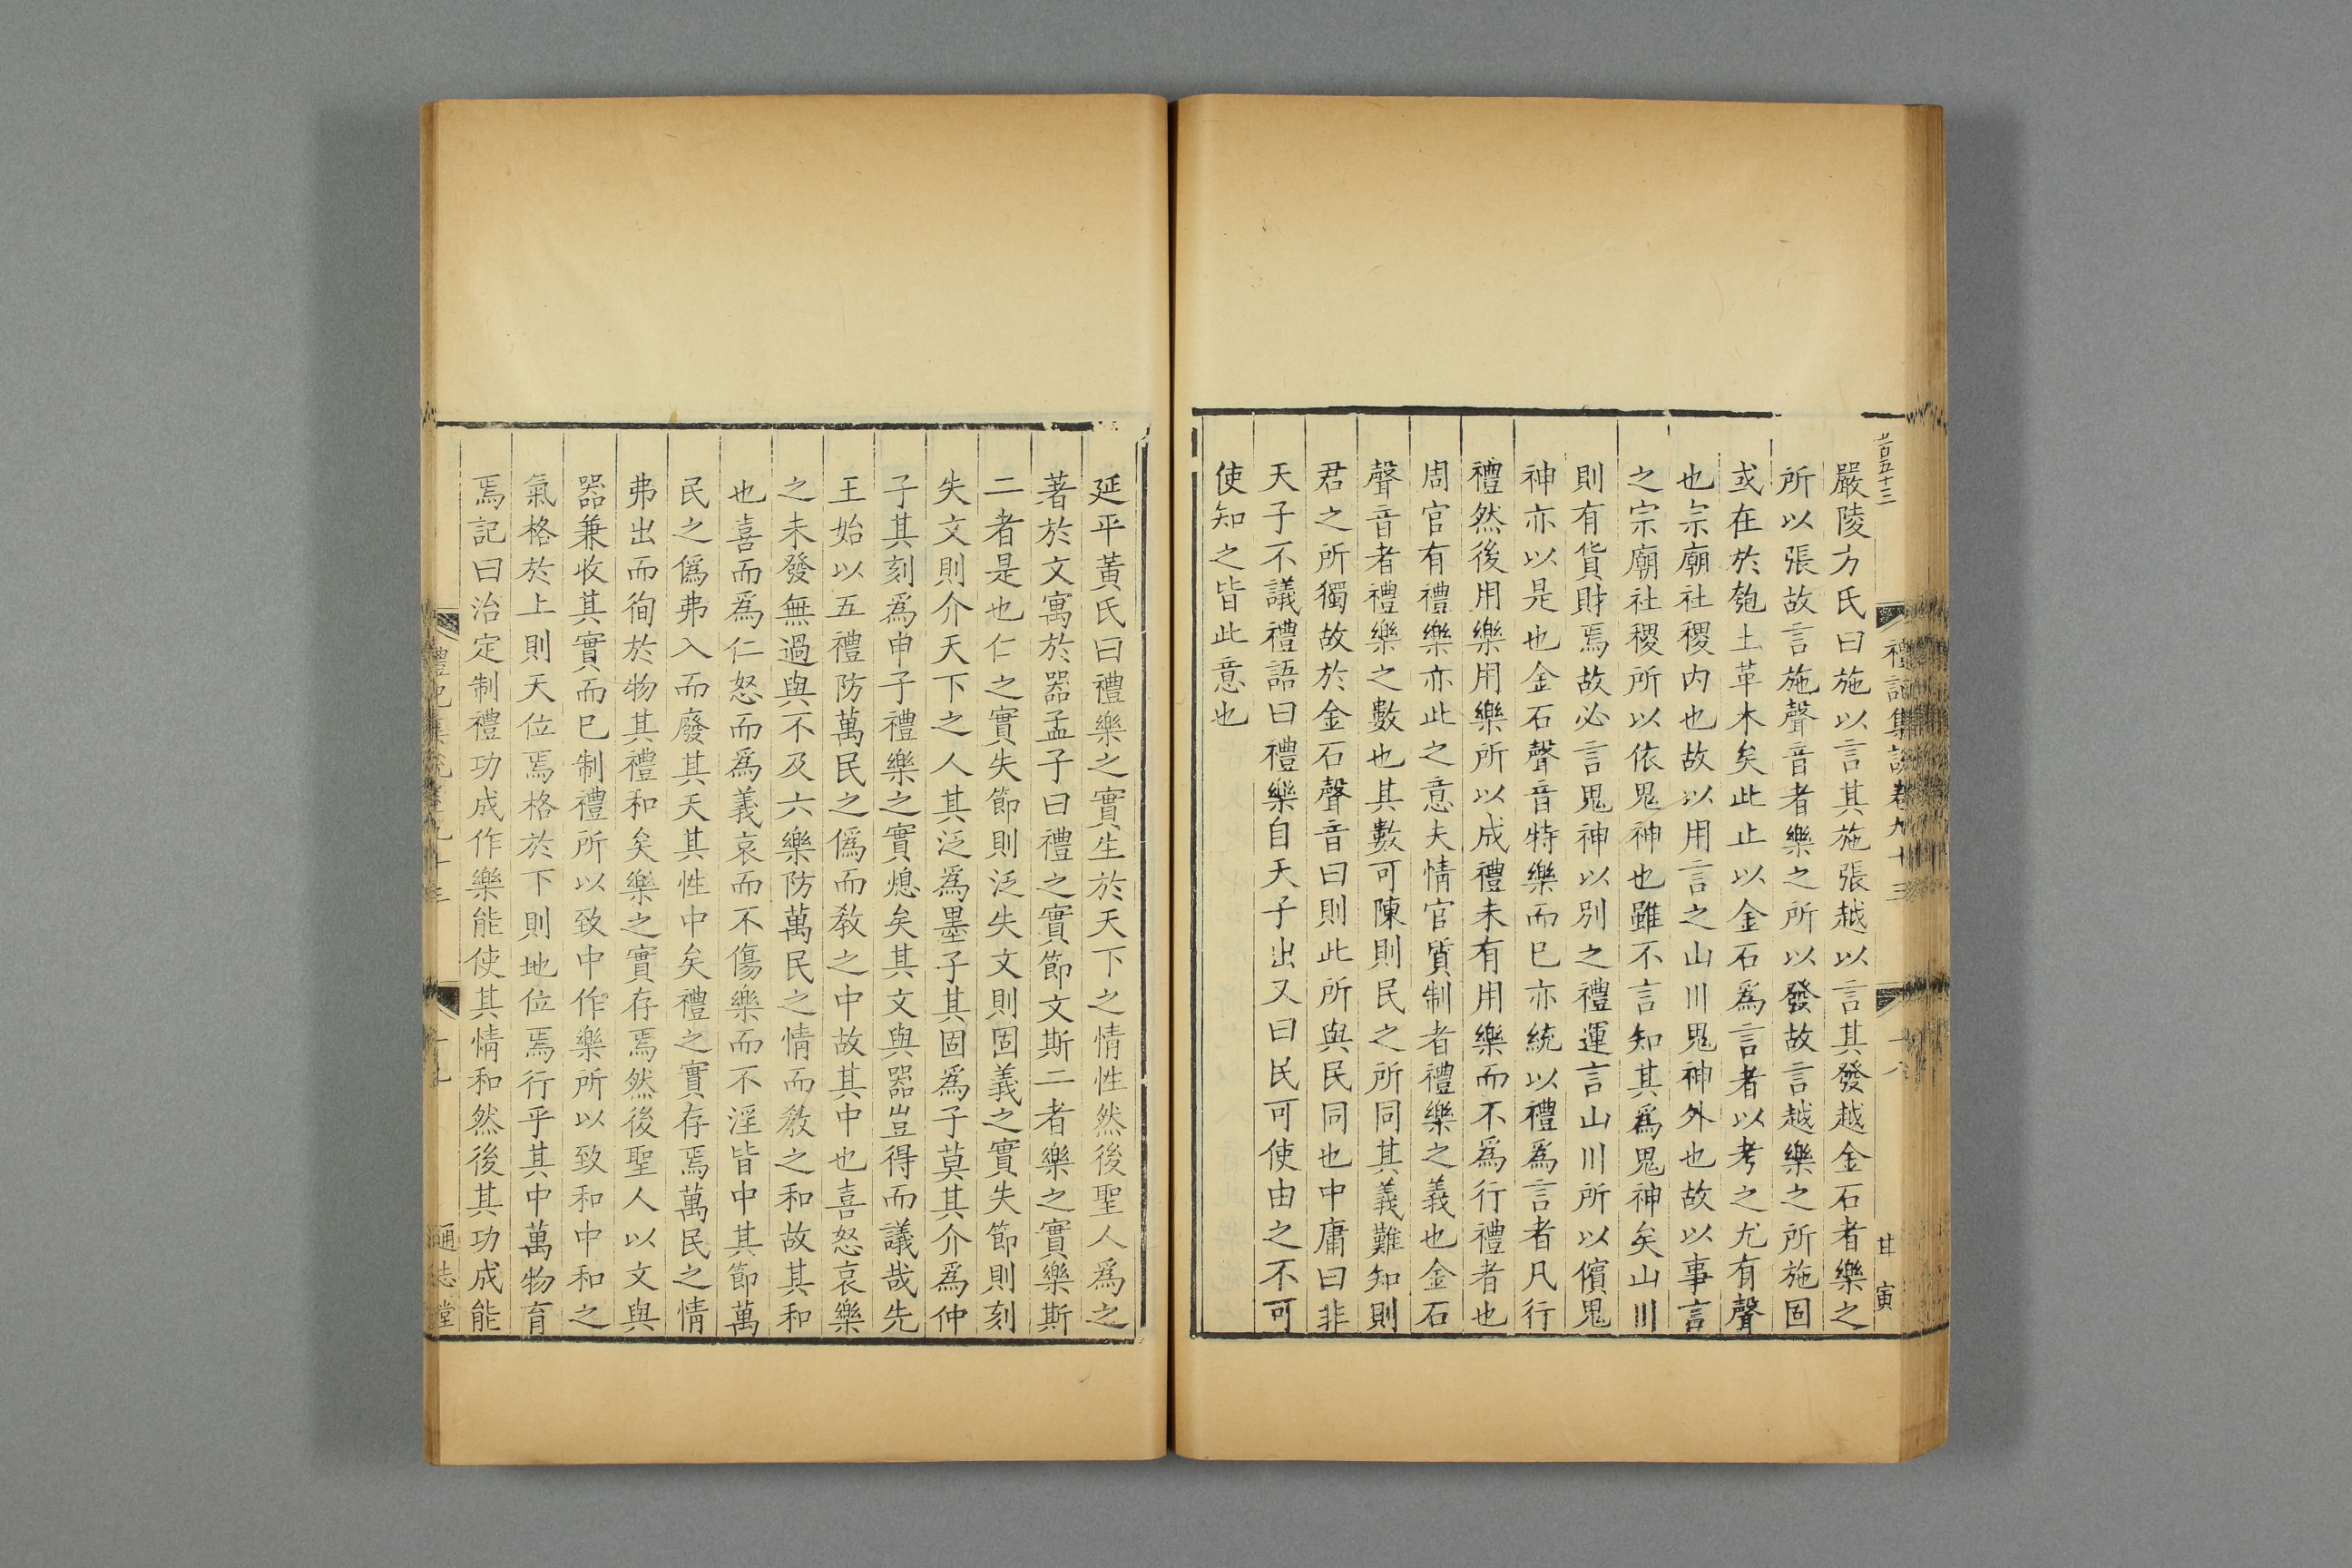 嚴陵方氏曰施以言其施張越以言其發越金石者樂之
所以張故言施聲音者樂之所以發故言越樂之所施固
或在於匏土革木矣此止以金石爲言者以考之尤有聲
也宗廟社稷内也故以用言之山川鬼神外也故以事言
之宗廟社稷所以依鬼神也雖不言知其爲鬼神矣山川
則有貨財焉故必言鬼神以别之禮運言山川所以儐鬼
神亦以是也金石聲音特樂而已亦統以禮爲言者凡行
禮然後用樂用樂所以成禮未有用樂而不爲行禮者也
周官有禮樂亦此之意夫情官質制者禮樂之義也金石
聲音者禮樂之數也其數可陳則民之所同其義難知則
君之所獨故於金石聲音曰則此所與民同也中庸曰非
天子不議禮語曰禮樂自天子出又曰民可使由之不可
使知之皆此意也
禮記集說卷九十三
十八
甘 寅
延平黃氏曰禮樂之實生於天下之情性然後聖人爲之
著於文寓於器孟子曰禮之實節文斯二者樂之實樂斯
二者是也仁之實失節則泛失文則固義之實失節則刻
失文則介天下之人其泛爲墨子其固爲子莫其介爲仲
子其刻爲申子禮樂之實熄矣其文與器豈得而議哉先
王始以五禮防萬民之僞而教之中故其中也喜怒哀樂
之未發無過與不及六樂防萬民之情而教之和故其和
也喜而爲仁怒而爲義哀而不傷樂而不淫皆中其節萬
民之僞弗入而廢其天其性中矣禮之實存焉萬民之情
弗出而徇於物其禮和矣樂之實存焉然後聖人以文與
器兼收其實而已制禮所以致中作樂所以致和中和之
氣格於上則天位焉格於下則地位焉行乎其中萬物育
焉記曰治定制禮功成作樂能使其情和然後其功成能
禮記集說卷九十三
十九
通志堂